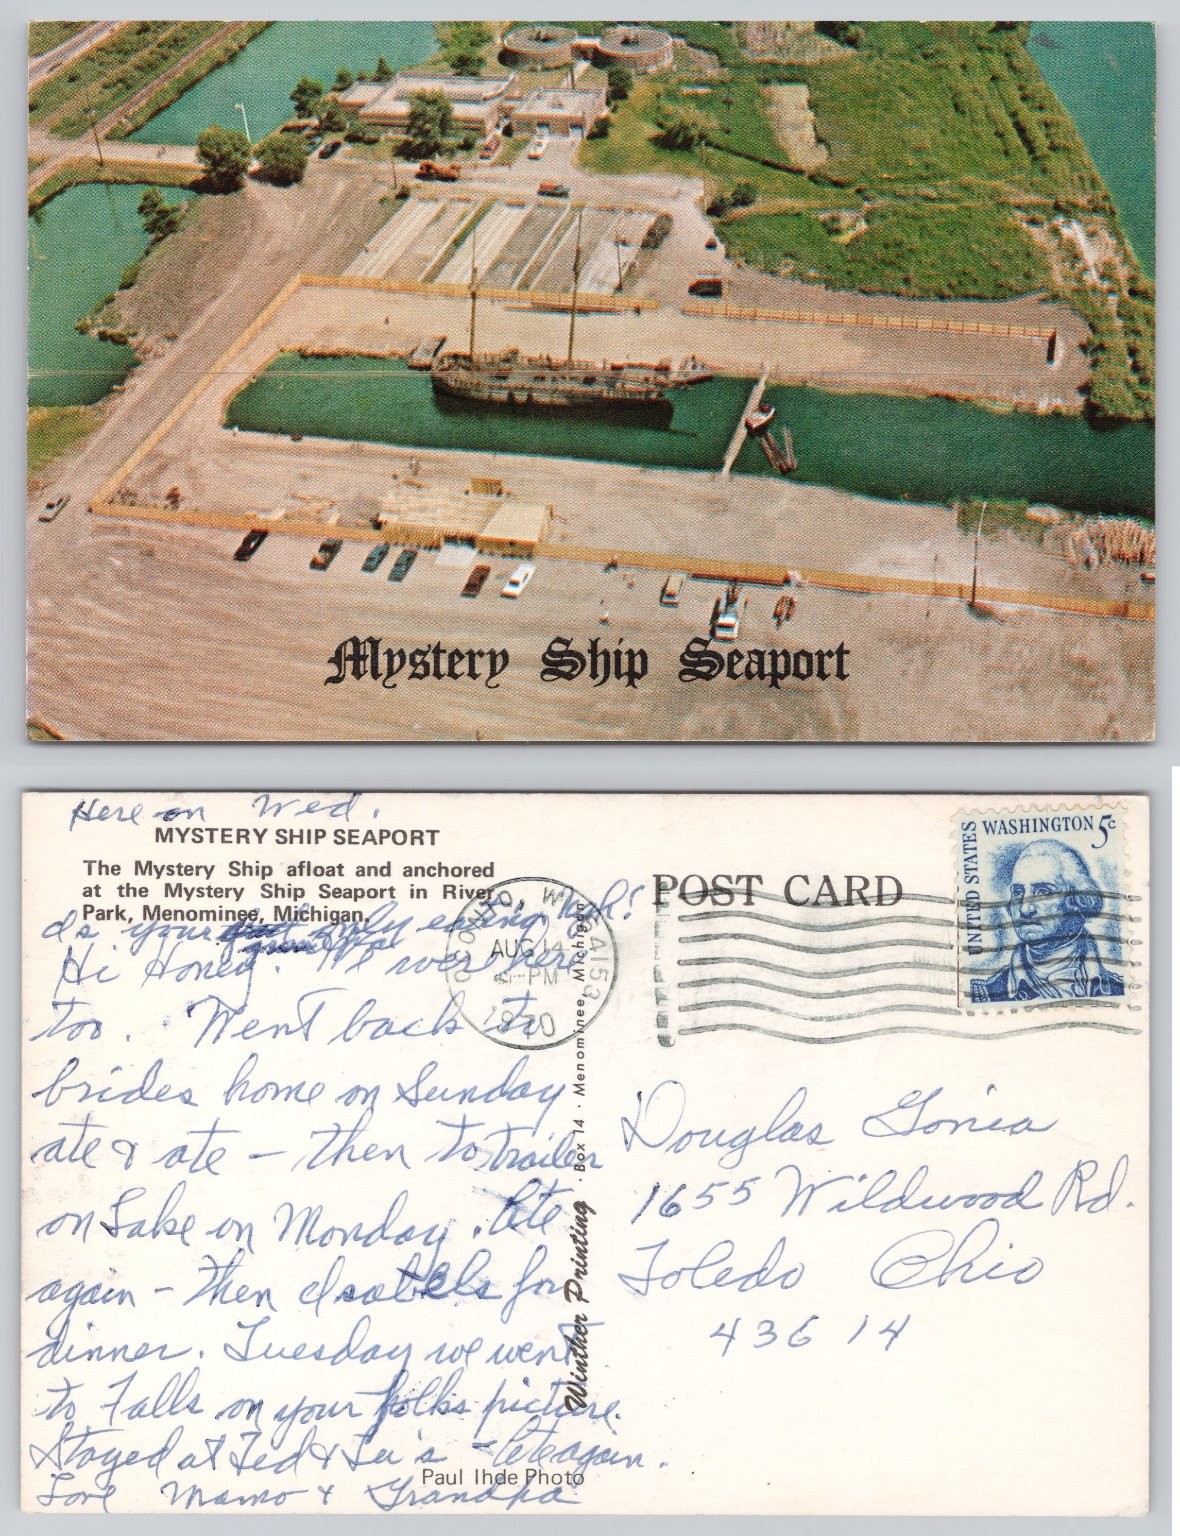 Mystery Ship Seaport
Here on Wed.
MYSTERY SHIP SEAPORT
The Mystery Ship afloat and anchored
at the Mystery Ship Seaport in River
Park, Menominee, Michigan.
Is your only eating
Hi Honey. We were here
too. Went back to
brides home on Sunday
ate & ate - then to trailer
on Lake on Monday. Ate
again - then Isabels for
dinner. Tuesday we went
to Falls on your folks picture.
Stayed at Ted & Lu's - Ate again.
Love Mamo & Grandpa
Paul Ihde Photo
Winther Printing · Box 14 · Menominee, Michigan
POST CARD
OCONTO, WIS
AUG 14
PM
1970
UNITED STATES
WASHINGTON 5c
Douglas Gonia
1655 Wildwood Rd.
Toledo Ohio
43614